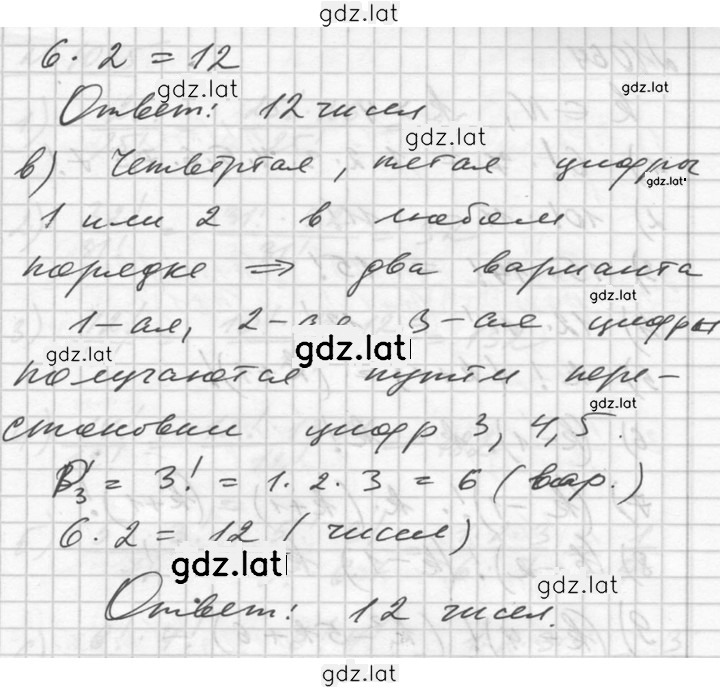 gdz.lat
6 · 2 = 12
gdz.lat
Ответ: 12 чисел
gdz.lat
в) Четвёртая, пятая цифры
gdz.lat
1 или 2 в любом
порядке ⇒ два варианта
gdz.lat
1-ая, 2-ая, 3-ая цифры
gdz.lat
gdz.lat
получаются путём пере-
gdz.lat
становки цифр 3, 4, 5.
P₃ = 3! = 1 · 2 · 3 = 6 (вар.)
6 · 2 = 12 (чисел)
gdz.lat
gdz.lat
Ответ: 12 чисел.
gdz.lat